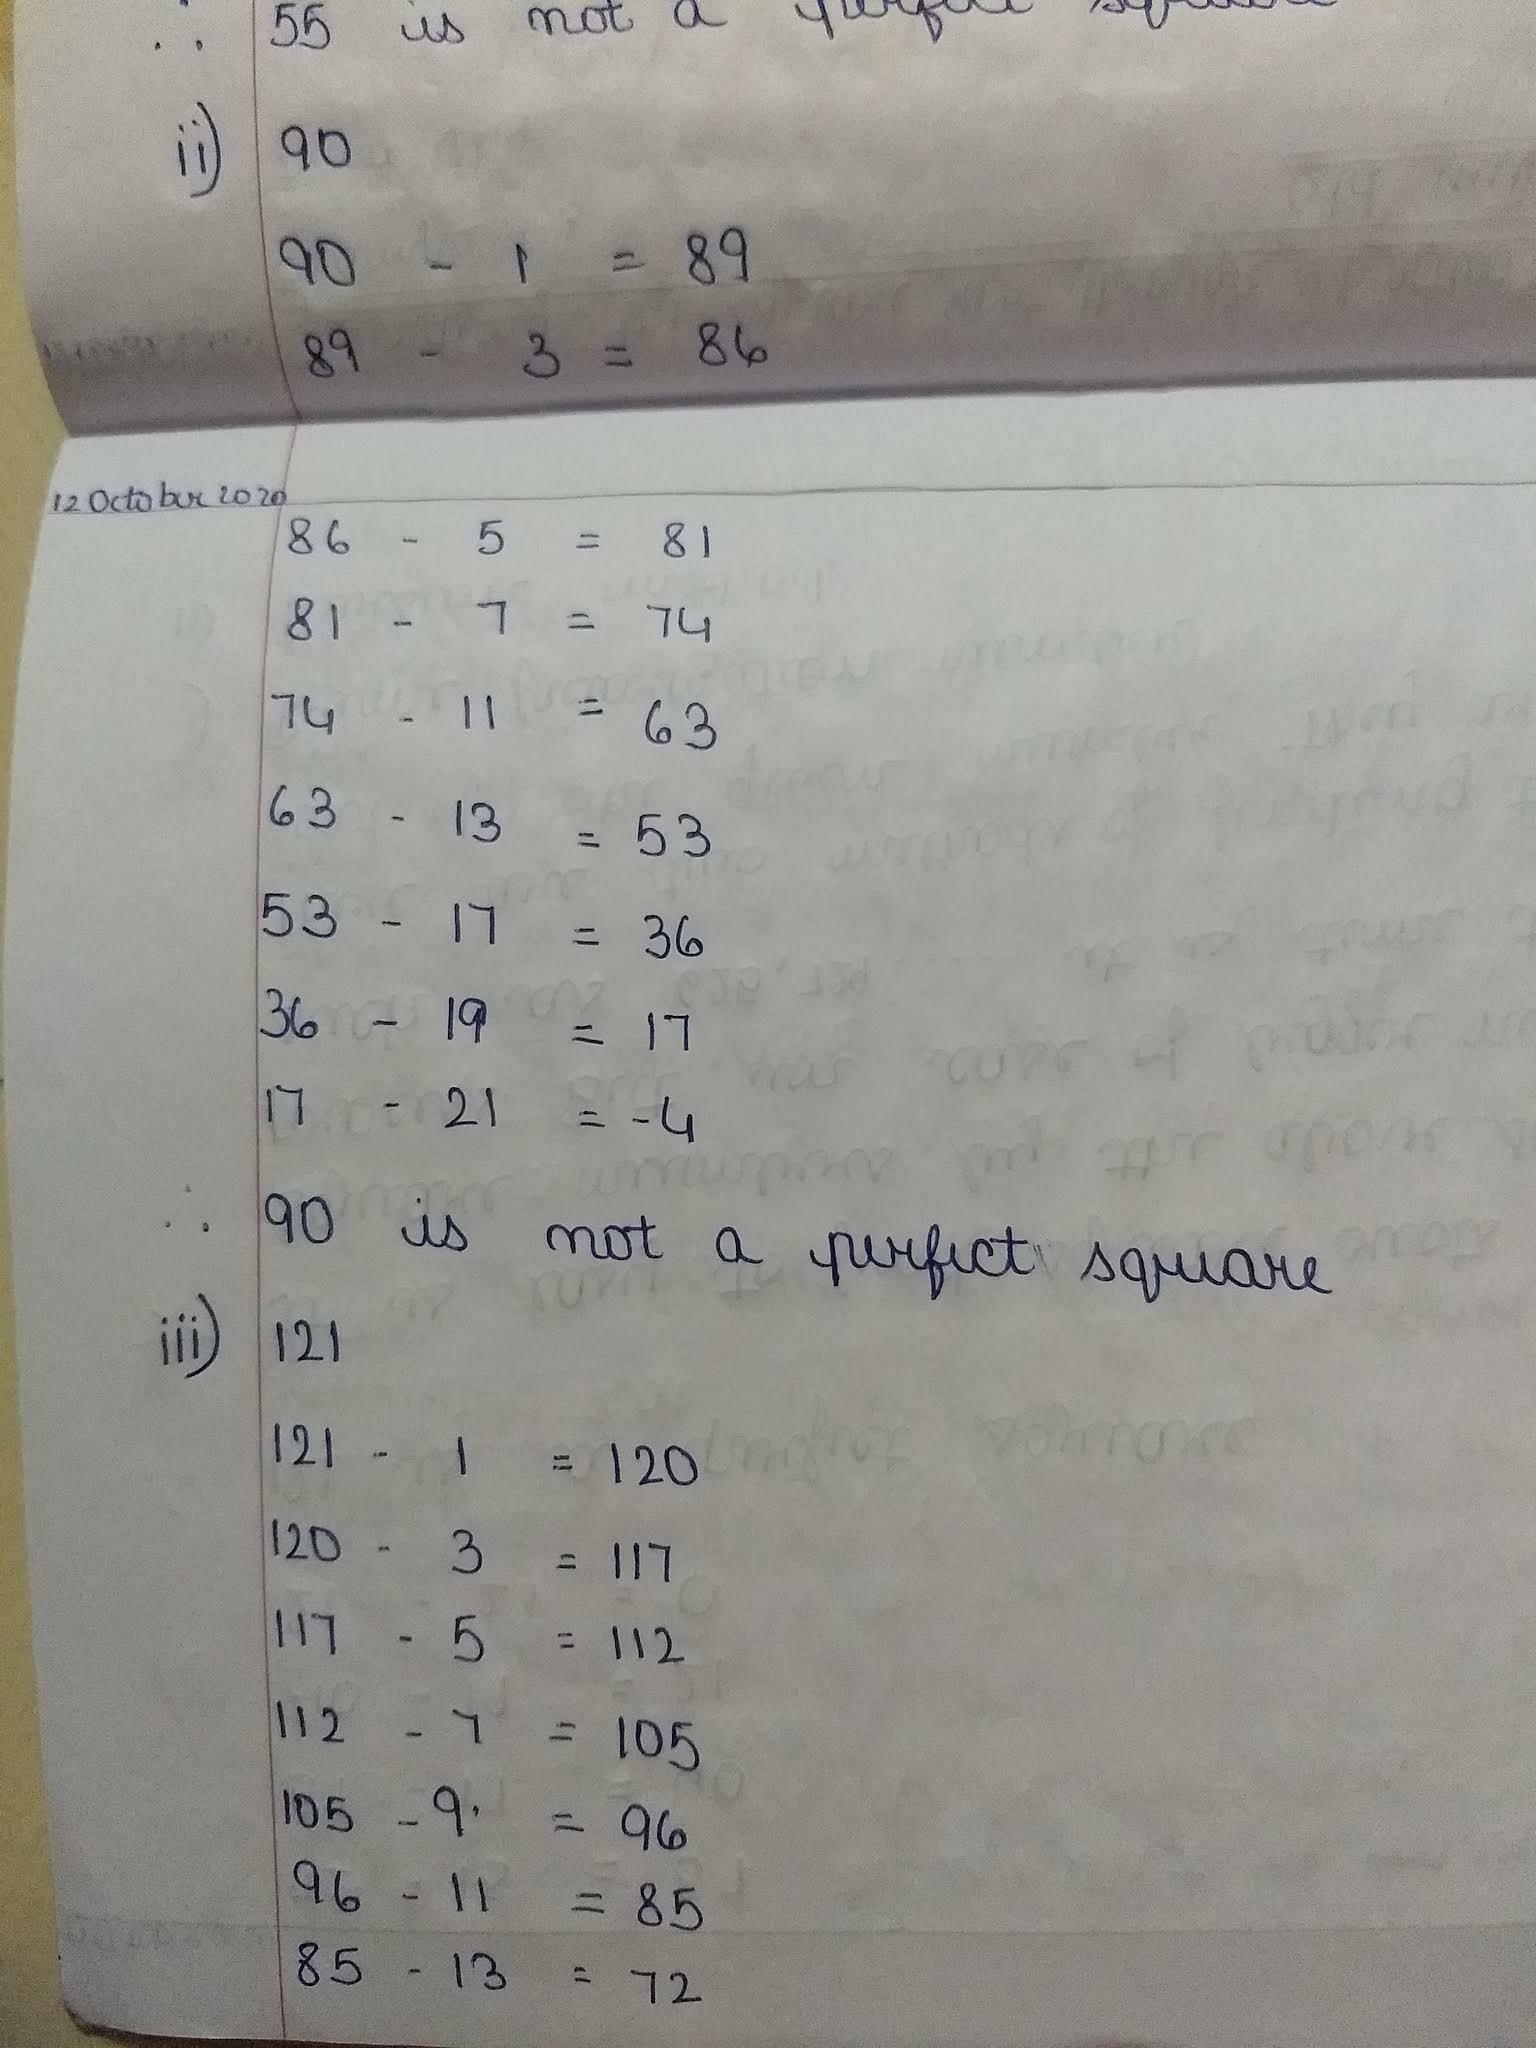 ∴ 55 is not a perfect square
ii) 90
90 - 1 = 89
89 - 3 = 86
12 October 2020
86 - 5 = 81
81 - 7 = 74
74 - 11 = 63
63 - 13 = 53
53 - 17 = 36
36 - 19 = 17
17 - 21 = -4
∴ 90 is not a perfect square
iii) 121
121 - 1 = 120
120 - 3 = 117
117 - 5 = 112
112 - 7 = 105
105 - 9 = 96
96 - 11 = 85
85 - 13 = 72